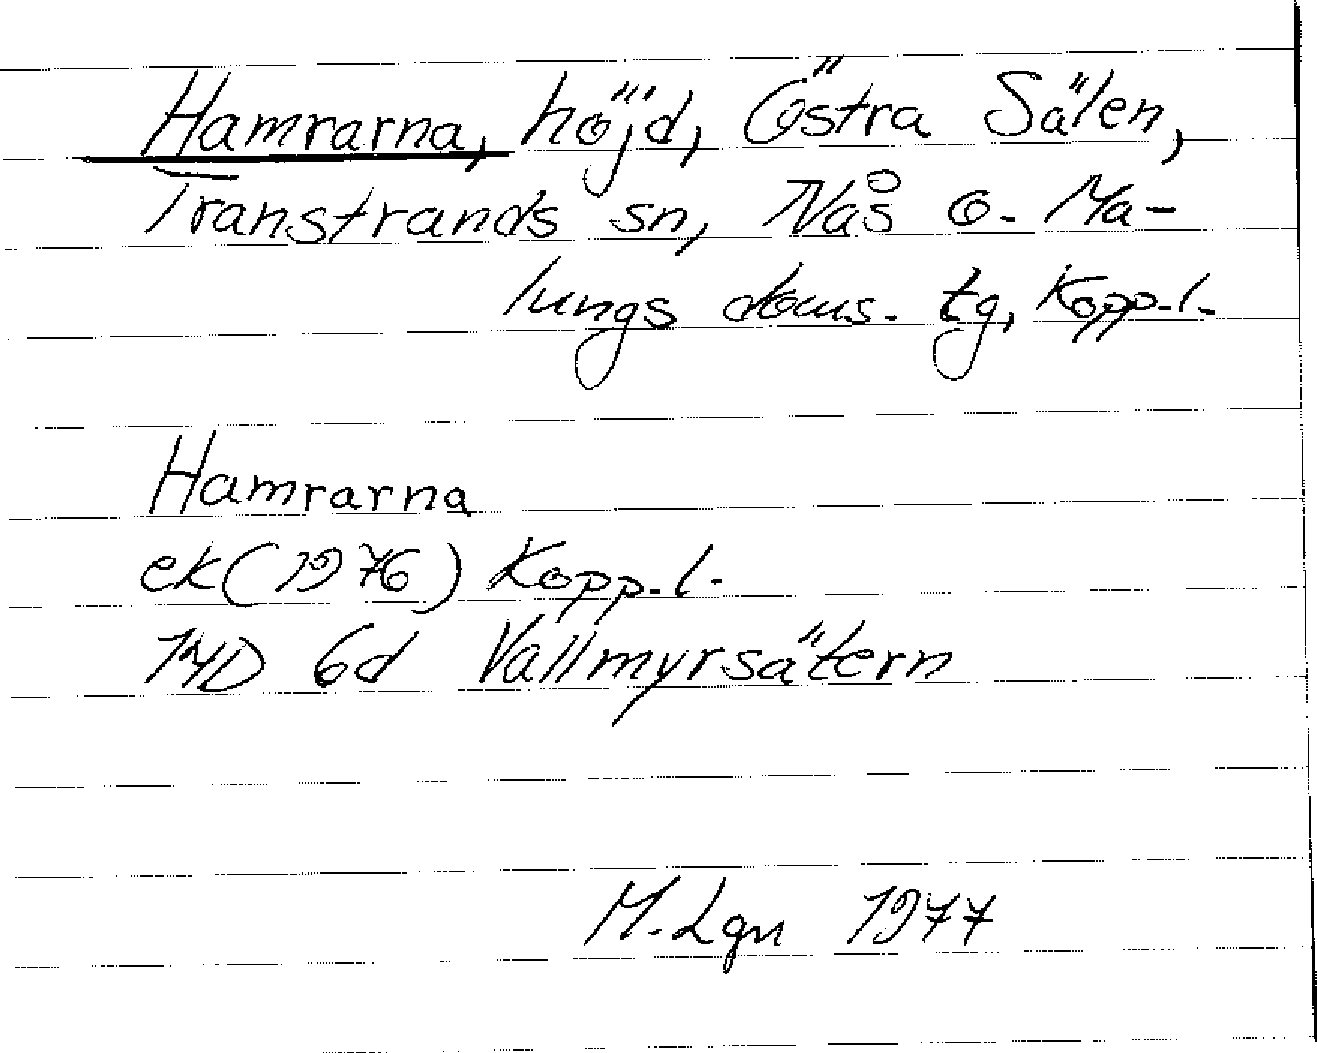 Hamrarna, höjd, Östra Sälen,
Transtrands sn, Nås o. Ma-
lungs doms. tg, Kopp.l.
Hamrarna
ek (1976) Kopp.l.
14D 6d Vallmyrsätern
M. Lgn 1977